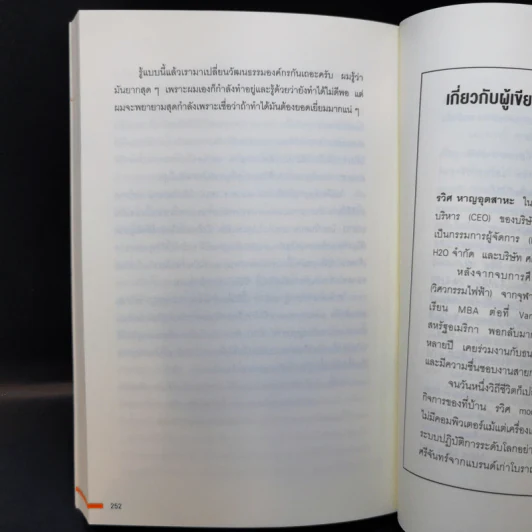 รู้แบบนี้แล้วเรามาเปลี่ยนวัฒนธรรมองค์กรกันเถอะครับ ผมรู้ว่า
มันยากสุด ๆ เพราะผมเองก็กำลังทำอยู่และรู้ด้วยว่ายังทำได้ไม่ดีพอ แต่
ผมจะพยายามสุดกำลังเพราะเชื่อว่าถ้าทำได้มันต้องยอดเยี่ยมมากแน่ ๆ
252
เกี่ยวกับผู้เขีย
รวิศ หาญอุตสาหะ ใน
บริหาร (CEO) ของบริษั
เป็นกรรมการผู้จัดการ
H2O จำกัด และบริษัท
หลังจากจบการศึ
(วิศวกรรมไฟฟ้า) จากจุฬา
เรียน MBA ต่อที่ Van
สหรัฐอเมริกา พอกลับมา
หลายปี เคยร่วมงานกับธน
และมีความชื่นชอบงานสาย
จนวันหนึ่งวิถีชีวิตก็เป
กิจการของที่บ้าน รวิศ
ไม่มีคอมพิวเตอร์แม้แต่เครื่อง
ระบบปฏิบัติการระดับโลกอย่า
ศรีจันทร์จากแบรนด์เก่าโบรา